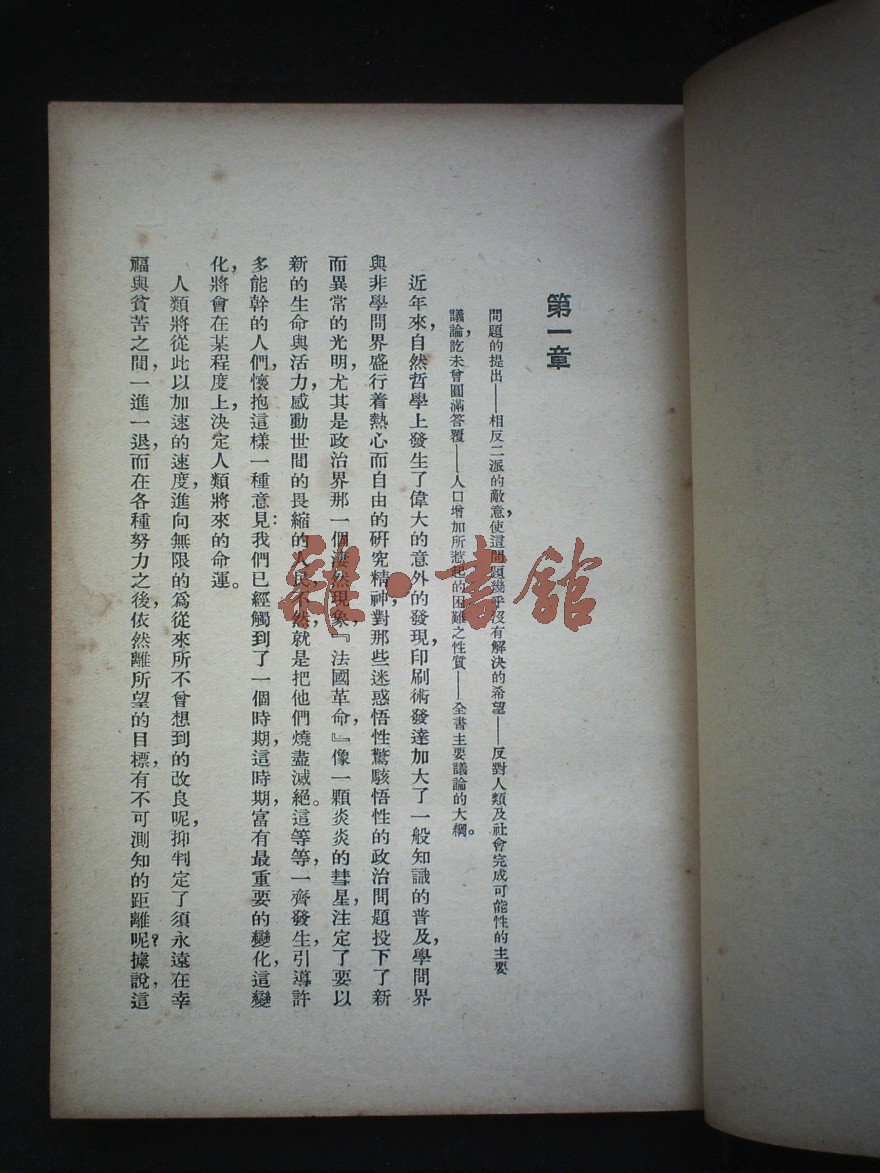 第一章
問題的提出——相反二派的敵意，使這問題幾乎沒有解決的希望——反對人類及社會完成可能性的主要
議論，訖未曾圓滿答覆——人口增加所惹起的困難之性質——全書主要議論的大綱。
近年來，自然哲學上發生了偉大的意外的發現，印刷術發達加大了一般知識的普及，學問界
與非學問界盛行着熱心而自由的研究精神，對那些迷惑悟性驚駭悟性的政治問題投下了新
而異常的光明，尤其是政治界那一個淒然現象，『法國革命』，像一顆炎炎的彗星，注定了要以
新的生命與活力，感動世間的畏縮的人民，不然，就是把他們燒盡滅絕。這等等，一齊發生，引導許
多能幹的人們，懷抱這樣一種意見：我們已經觸到了一個時期，這時期富有最重要的變化，這變
化，將會在某程度上，決定人類將來的命運。
人類將從此以加速的速度，進向無限的爲從來所不曾想到的改良呢，抑判定了須永遠在幸
福與貧苦之間，一進一退，而在各種努力之後，依然離所望的目標，有不可測知的距離呢？據說，這
雜·書館